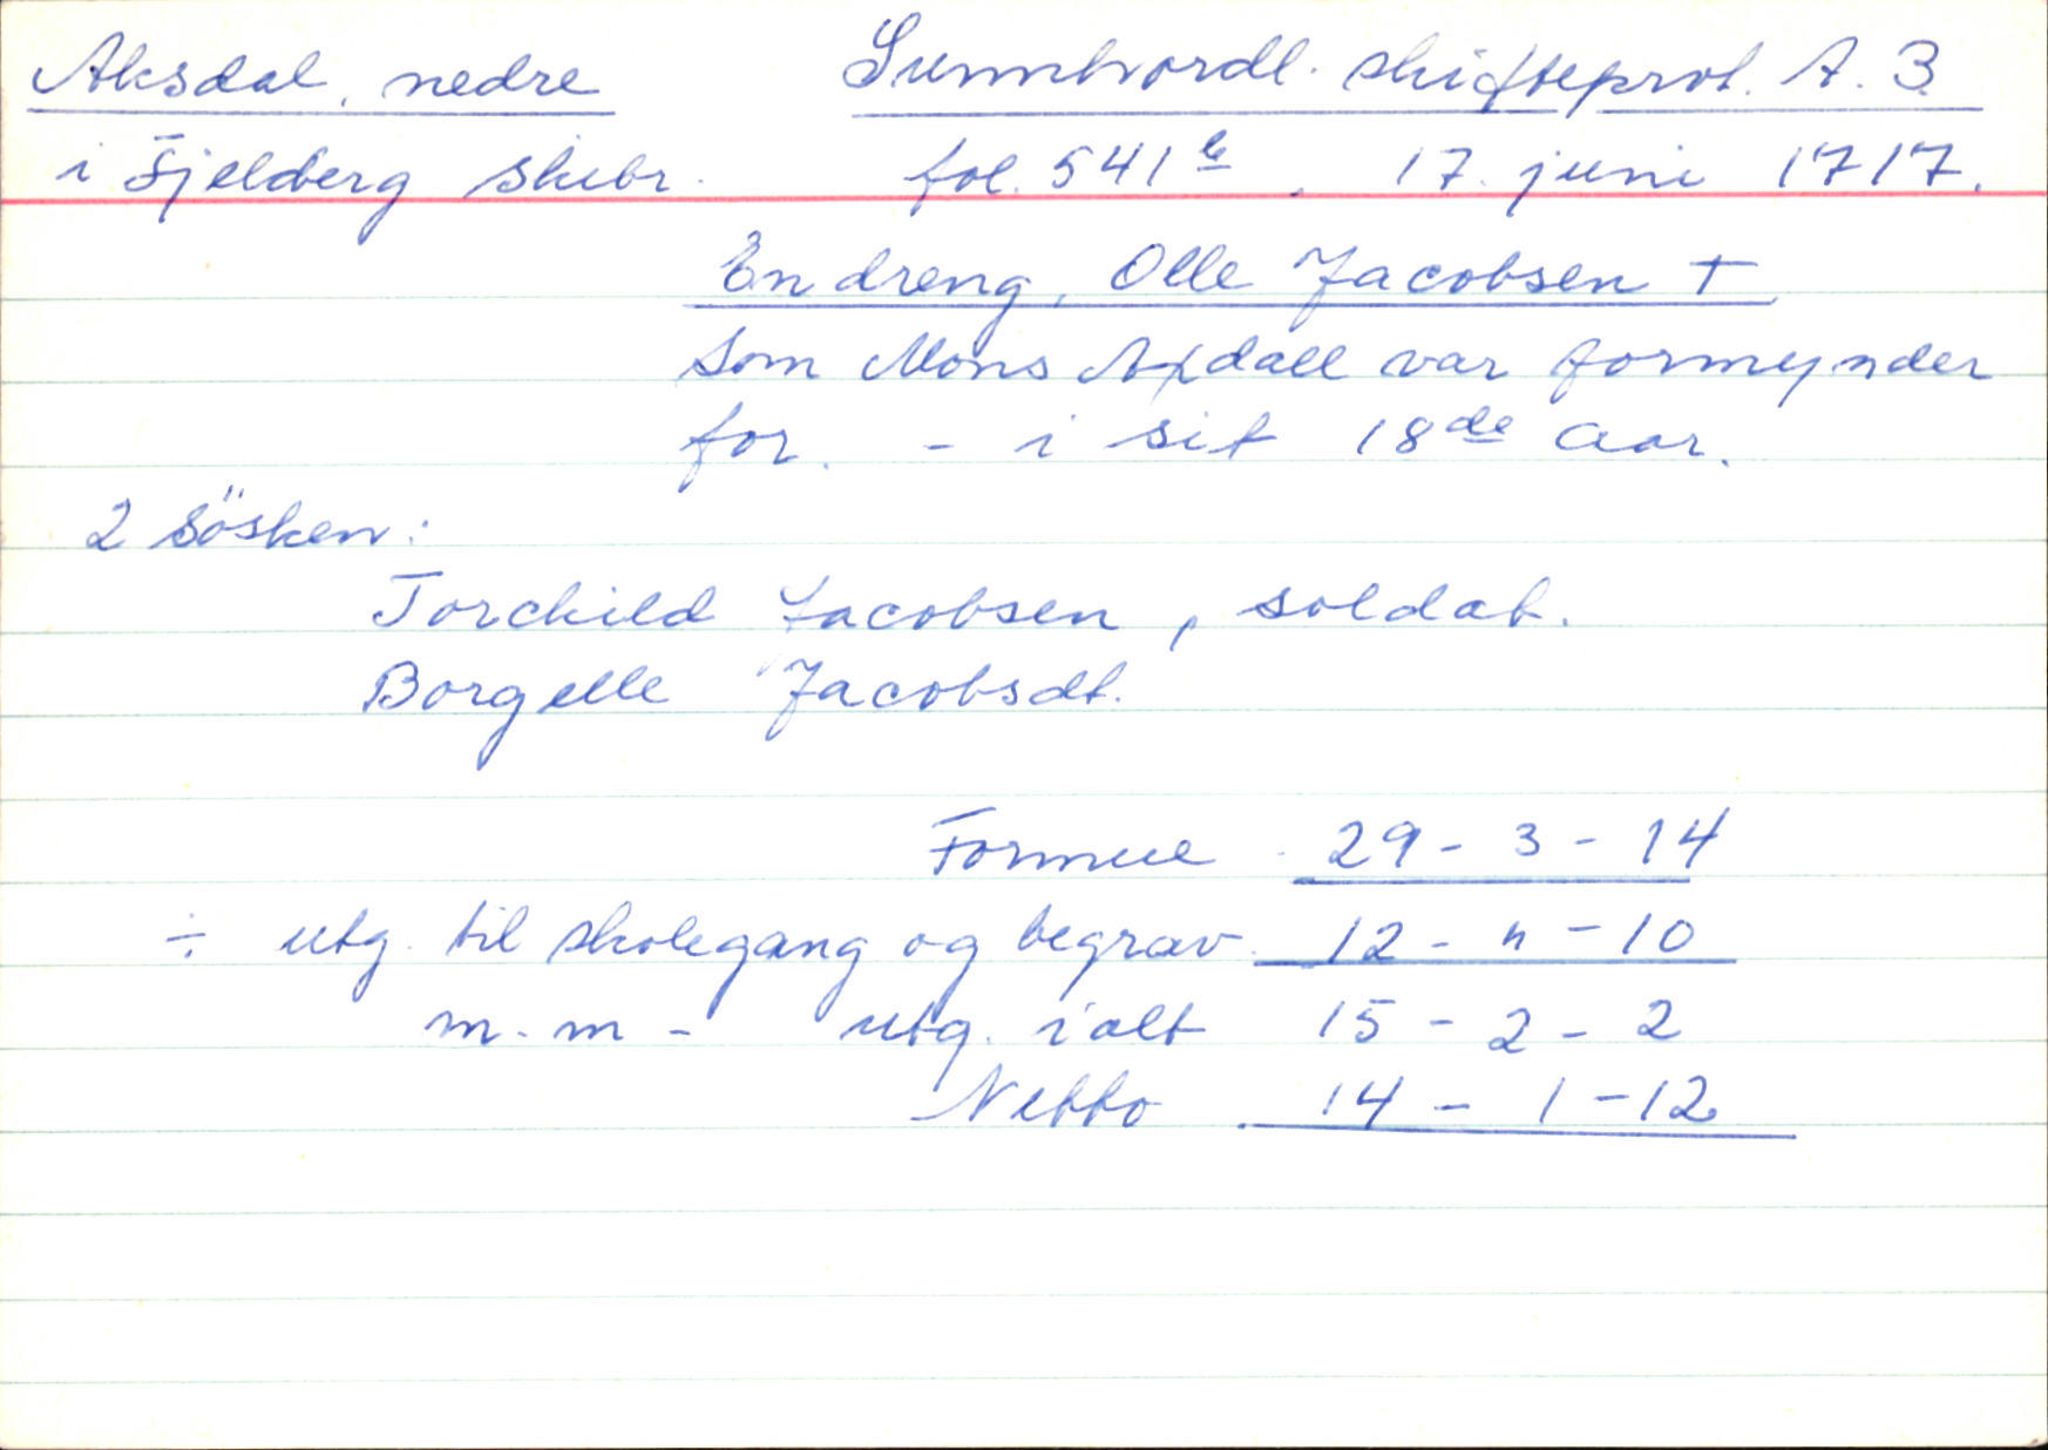 Aksdal, nedre
i Fjelberg skibr.
Sunnhordl. skifteprot. A. 3
fol. 541 b. 17. juni 1717.
En dreng, Olle Jacobsen †
som Mons Axdall var formynder
for. - i sit 18de Aar.
2 sösken:
Torchild Jacobsen, soldat.
Borgelle Jacobsdt.
Formue 29 - 3 - 14
÷ utg. til skolegang og begrav. 12 - " - 10
m. m - utg. ialt 15 - 2 - 2
Netto 14 - 1 - 12